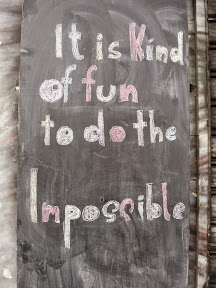 It is Kind
of fun
to do the
Impossible